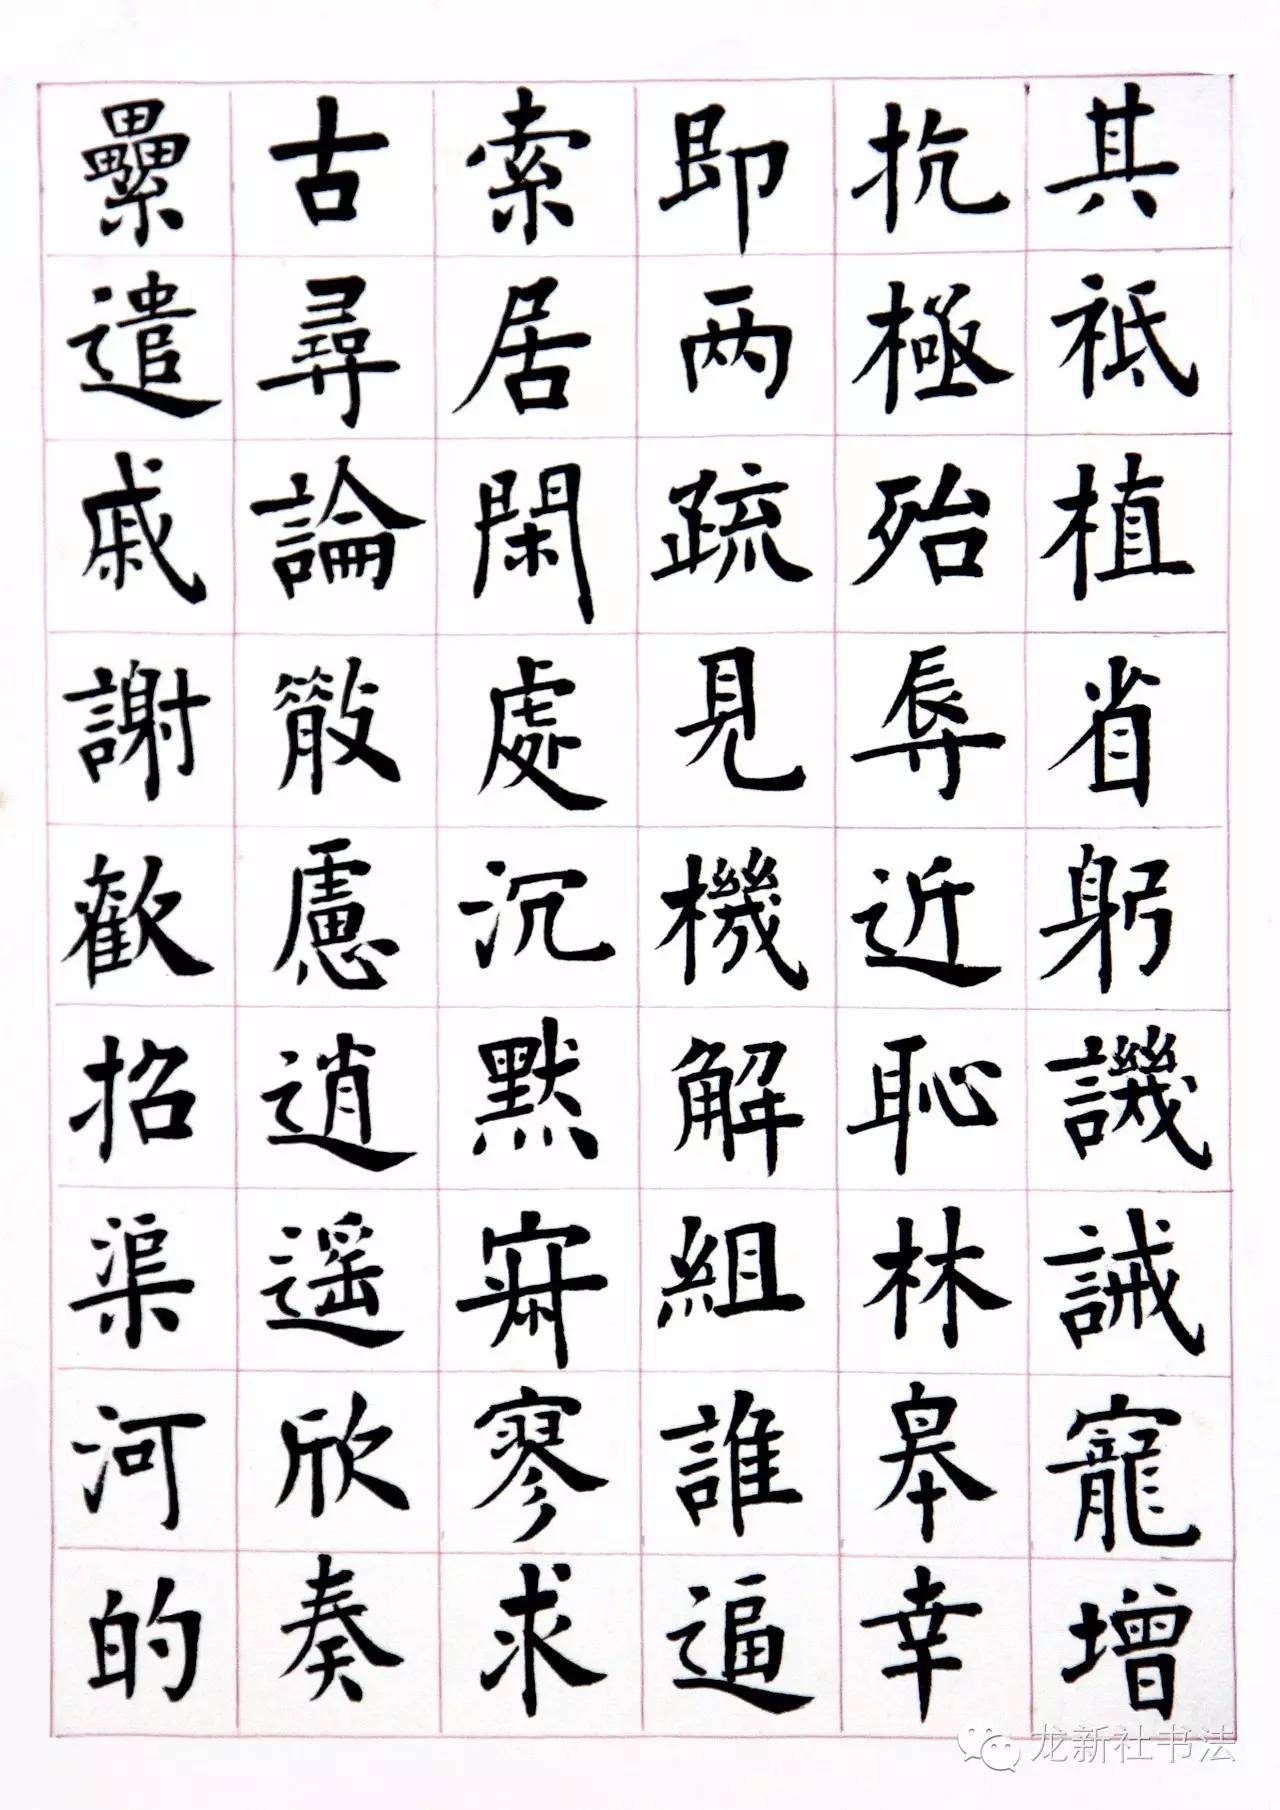 其祗植省躬譏誡寵增
抗極殆辱近恥林皋幸
即两疏見機解組誰逼
索居閑處沉默寂寥求
古尋論散慮逍遥欣奏
纍遣慼謝歡招渠河的
龙新社书法